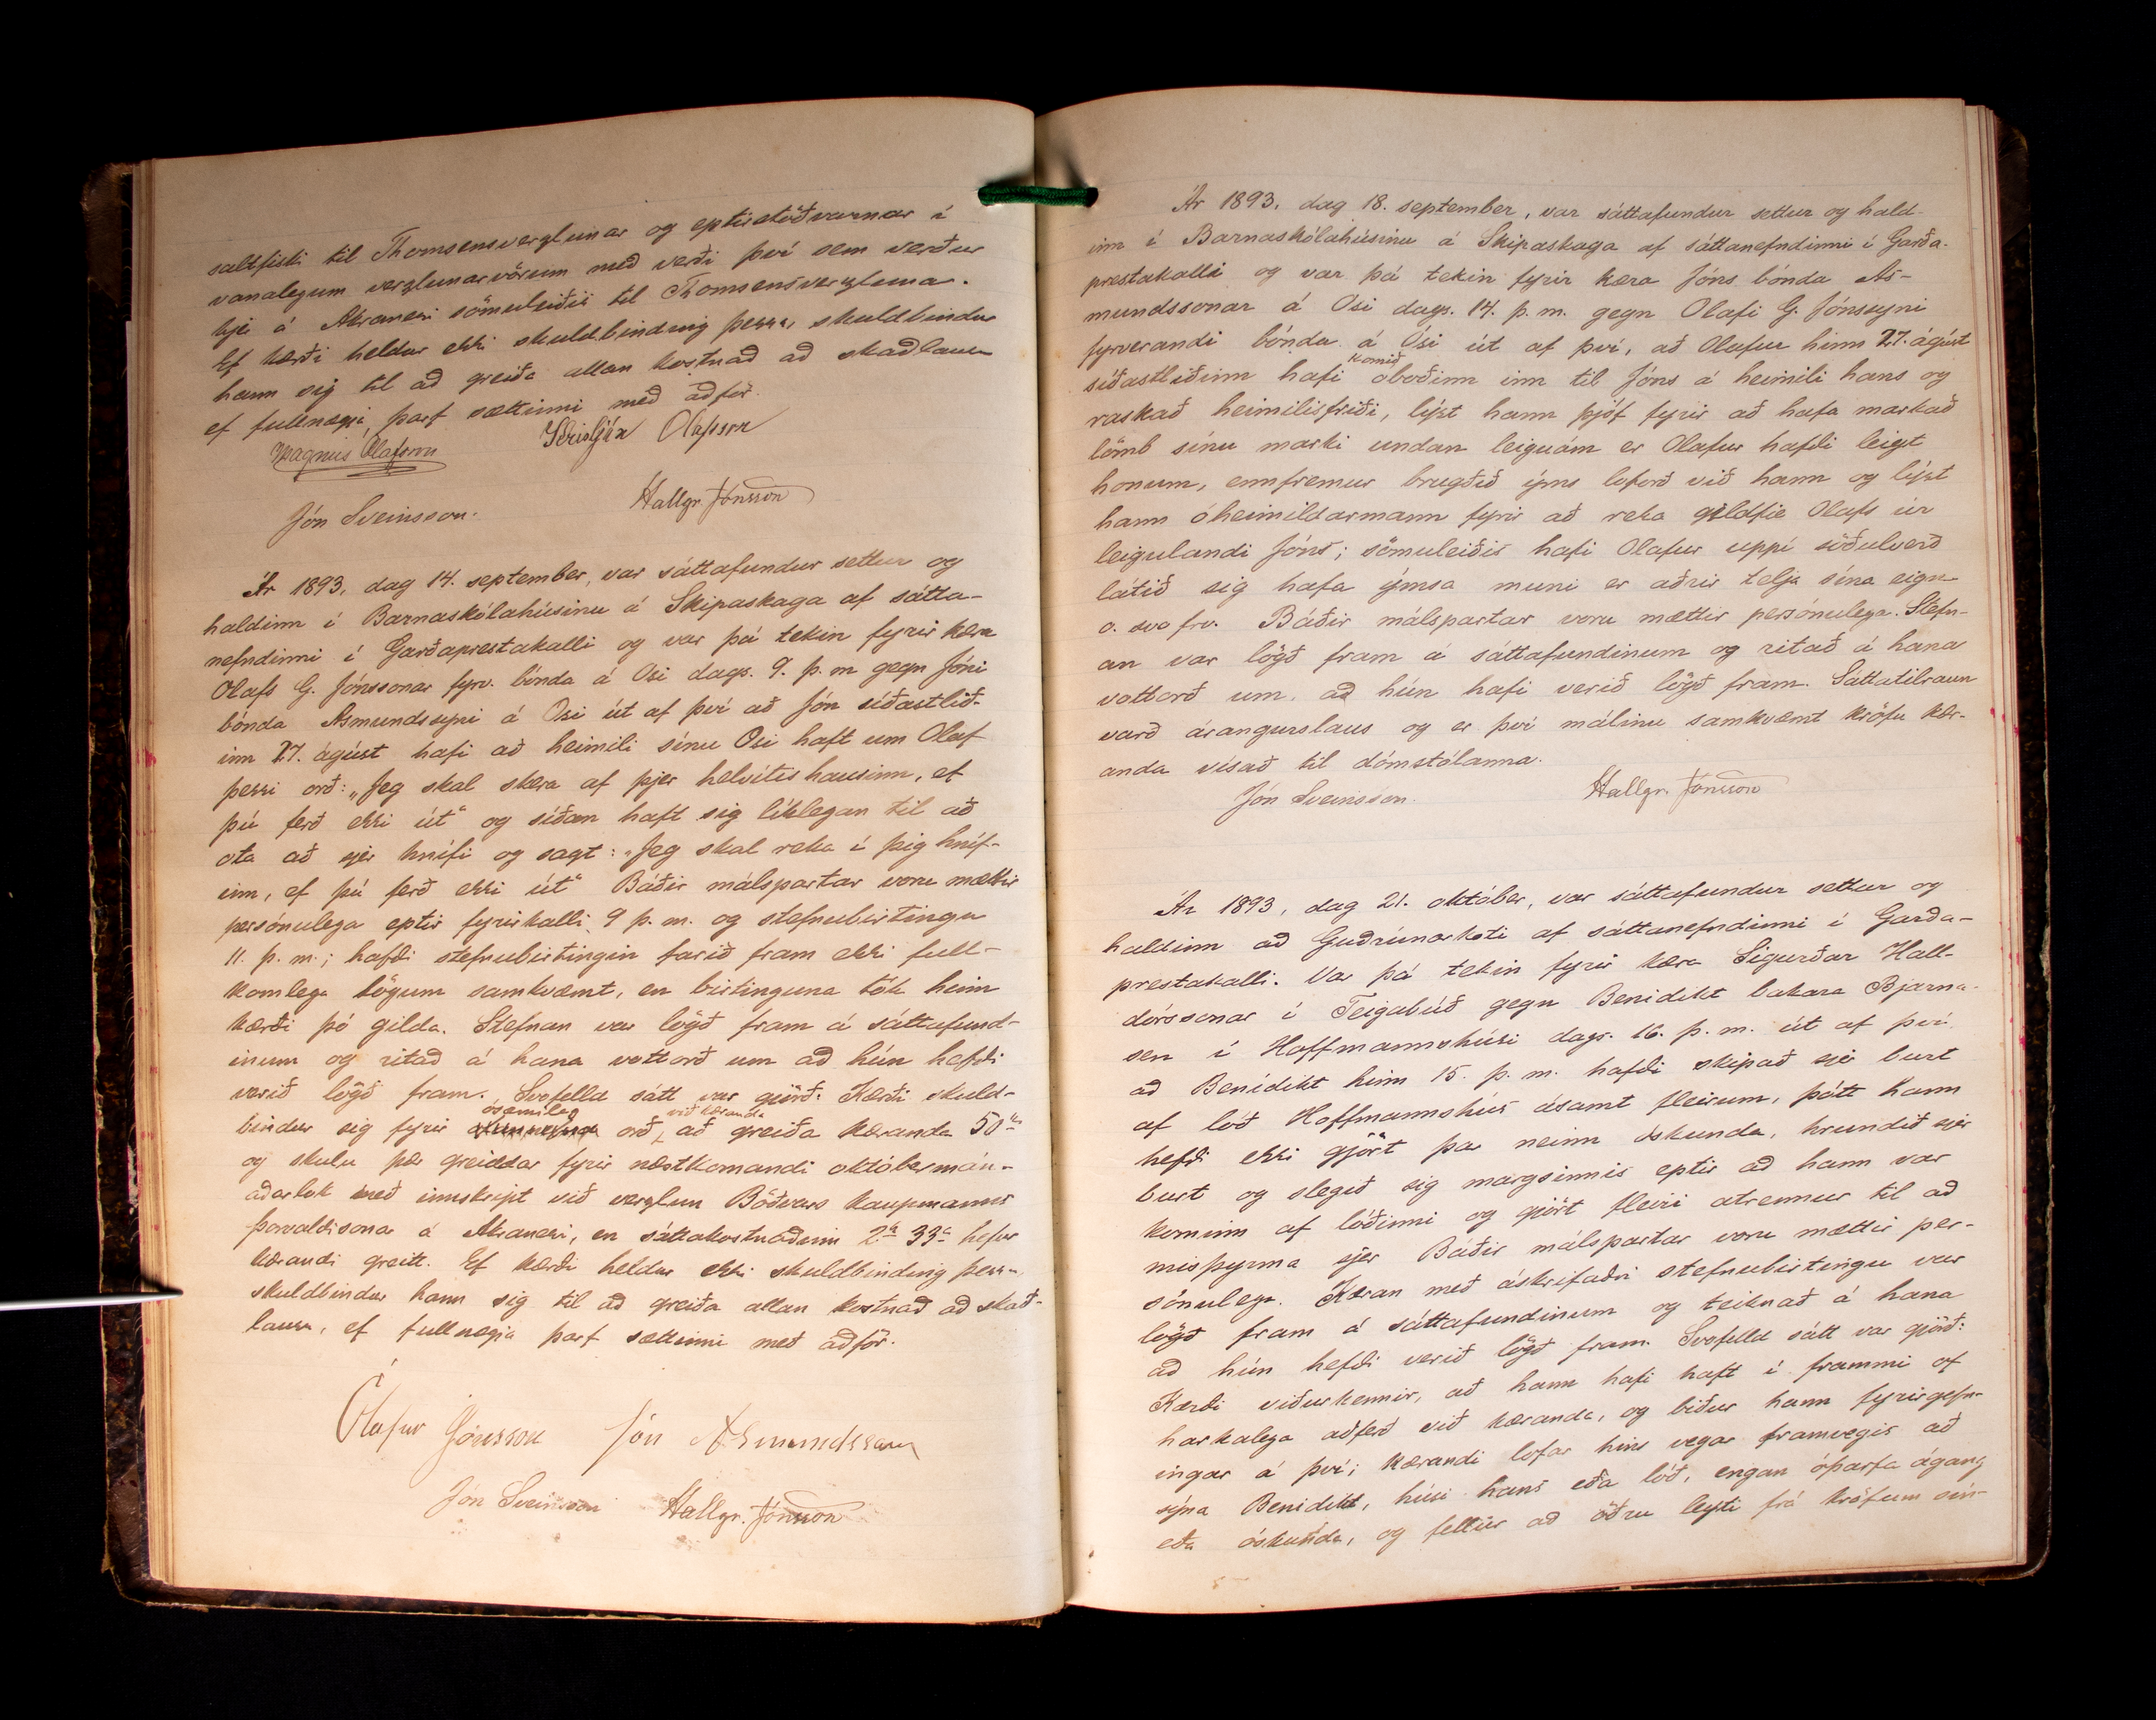 saltfiski til Thomsensverzlunar og eptirstöðvarnar í
vanalegum verzlunarvörum með verði því sem verður
hjá á Akranesi sömuleiðis til Thomsensverzlunar.
Ef kærði heldur ekki skuldbinding þessa, skuldbindur
hann sig til að greiða allan kostnað að skaðlausu
ef fullnægja þarf sættinni með aðför.
Magnús Ólafsson Kristján Ólafsson
Jón Sveinsson. Hallgr. Jónsson
Ár 1893, dag 14. september, var sáttafundur settur og
haldinn í Barnaskólahúsinu á Skipaskaga af sátta-
nefndinni í Garðaprestakalli og var þá tekin fyrir kæra
Olafs G. Jónssonar fyrv. bónda á Osi dags. 9. þ. m gegn Jóni
bónda Asmundssyni á Osi út af því að Jón síðastlið-
inn 27. ágúst hafi að heimili sínu Osi haft um Olaf
þessi orð: „Jeg skal skera af þjer helvítis hausinn, ef
þú ferð ekki út“ og síðan haft sig líklegan til að
ota að sjer hnífi og sagt: „Jeg skal reka í þig hníf-
inn, ef þú ferð ekki út“ Báðir málspartar voru mættir
persónulega eptir fyrirkalli 9 þ. m. og stefnubirtingu
11. þ. m.; hafði stefnubirtingin farið fram ekki full-
komlega lögum samkvæmt, en birtinguna tók hinn
kærði þó gilda. Stefnan var lögð fram á sáttafund-
inum og ritað á hana vottorð um að hún hefði
verið lögð fram. Svofelld sátt var gjörð: Kærði skuld-
bindur sig fyrir ósæmileg orð við kæranda að greiða kæranda 50 kr
og skulu þær greiddar fyrir næstkomandi októbermán-
aðarlok með innskript við verzlun Böðvars kaupmanns
Þorvaldssonar á Akranesi, en sáttakostnaðinn 2 kr 33 a hefur
kærandi greitt. Ef kærði heldur ekki skuldbinding þessa
skuldbindur hann sig til að greiða allan kostnað að skað-
lausu, ef fullnægja þarf sættinni með aðför.
Ólafur Jónsson Jón Asmundsson
Jón Sveinsson Hallgr. Jónsson
Ár 1893, dag 18. september, var sáttafundur settur og hald-
inn í Barnaskólahúsinu á Skipaskaga af sáttanefndinni í Garða-
prestakalli og var þá tekin fyrir kæra Jóns bónda As-
mundssonar á Osi dags. 14. þ. m. gegn Olafi G. Jónssyni
fyrverandi bónda á Ósi út af því, að Olafur hinn 27. ágúst
síðastliðinn hafi komið óboðinn inn til Jóns á heimili hans og
raskað heimilisfriði, lýst hann þjóf fyrir að hafa markað
lömb sínu marki undan leiguám er Olafur hafði leigt
honum, ennfremur brugðið ýms loforð við hann og lýst
hann óheimildarmann fyrir að reka geldfie Olafs úr
leigulandi Jóns; sömuleiðis hafi Olafur uppí söðulverð
látið sig hafa ýmsa muni er aðrir telja sína eign
o. svo frv. Báðir málspartar voru mættir persónulega. Stefn-
an var lögð fram á sáttafundinum og ritað á hana
vottorð um, að hún hafi verið lögð fram. Sáttatilraun
varð árangurslaus og er því málinu samkvæmt kröfu kær-
anda vísað til dómstólanna.
Jón Sveinsson. Hallgr. Jónsson
Ár 1893, dag 21. október, var sáttafundur settur og
haldinn að Guðrúnarkoti af sáttanefndinni í Garða-
prestakalli. Var þá tekin fyrir kæra Sigurðar Hall-
dórssonar í Teigabúð gegn Benidikt bakara Bjarna-
sen í Hoffmannshúsi dags. 16. þ. m. út af því
að Benidikt hinn 15. þ. m. hafði skipað sjer burt
af lóð Hoffmannshús ásamt fleirum, þótt hann
hefði ekki gjört þar neinn óskunda, hrundið sjer
burt og slegið sig margsinnis eptir að hann var
kominn af lóðinni og gjört fleiri atrennur til að
misþyrma sjer. Báðir málspartar voru mættir per-
sónulega. Kæran með áskrifaðri stefnubirtingu var
lögð fram á sáttafundinum og teiknað á hana
að hún hefði verið lögð fram. Svofelld sátt var gjörð:
Kærði viðurkennir, að hann hafi haft í frammi of
harkalega aðferð við kæranda, og biður hann fyrirgefn-
ingar á því; kærandi lofar hins vegar framvegis að
sýna Benidikt, húsi hans eða lóð, engan óþarfa ágang
eða óskunda, og fellur að öðru leyti frá kröfum sín-